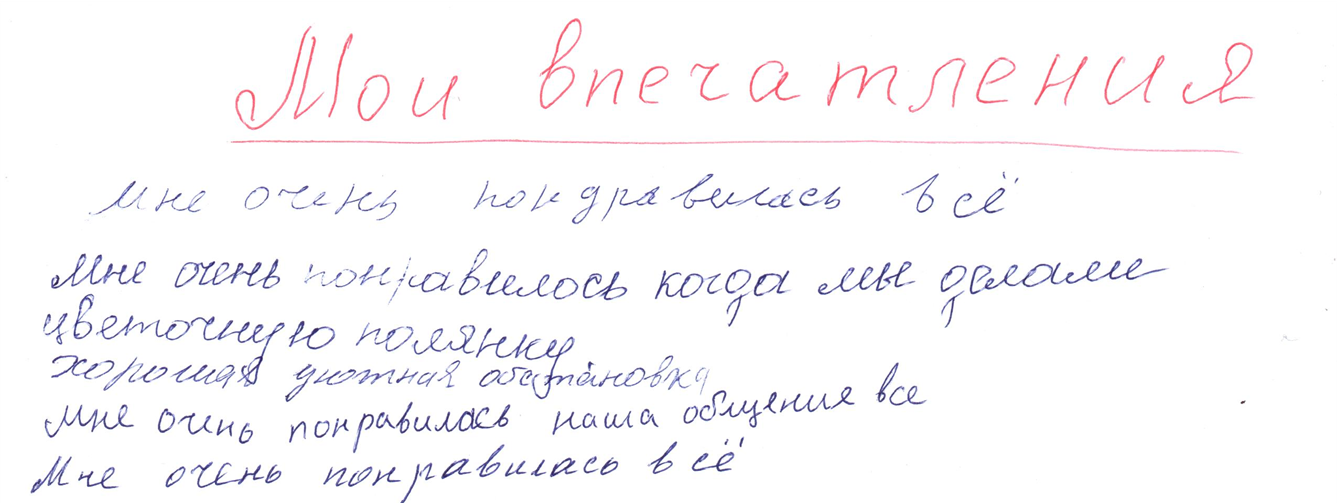 Мои впечатления
мне очень пондравилась всё
Мне очень понравилось когда мы делали
цветочную полянку
хорошая уютная обстановка
мне очень понравилась наша общения все
Мне очень понравилась всё